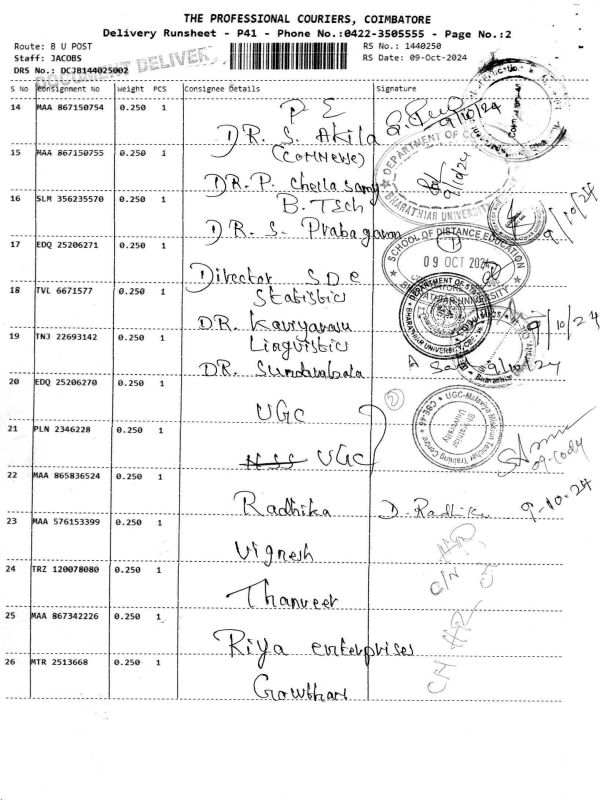 THE PROFESSIONAL COURIERS, COIMBATORE
Delivery Runsheet - P41 - Phone No.:0422-3505555 - Page No.:2
Route: B U POST
RS No.: 1440250
Staff: JACOBS
RS Date: 09-Oct-2024
DRS No.: DCJB144025002
DOCUMENT DELIVER
S No Consignment No Weight PCS Consignee Details Signature
14 MAA 867150754 0.250 1 P E
DR. S. Akila 9/10/24
15 MAA 867150755 0.250 1 (Commerce)
DR. P. Chellasamy 9/10/24
DEPARTMENT OF
BHARATHIAR UNIVERSITY
16 SLM 356235570 0.250 1 B.Tsch
DR. S. Prabagaran 9/10/24
17 EDQ 25206271 0.250 1
SCHOOL OF DISTANCE EDUCATION
09 OCT 2024
BHARATHIAR UNIVERSITY
Director S.D.E
18 TVL 6671577 0.250 1 Statistics
DR. Kaviyarasu 9/10/24
19 TNJ 22693142 0.250 1 Linguistics
DR. Sundarabala 9/10/24
20 EDQ 25206270 0.250 1
UGC 2
UGC-Malaviya Mission Teacher Training Centre
Bharathiar University
21 PLN 2346228 0.250 1
UGC
22 MAA 865836524 0.250 1
Radhika D. Radhika 9-10-24
23 MAA 576153399 0.250 1
Vignesh
24 TRZ 120078080 0.250 1
Thanveer
25 MAA 867342226 0.250 1
Riya enterprises
26 MTR 2513668 0.250 1
Gowtham